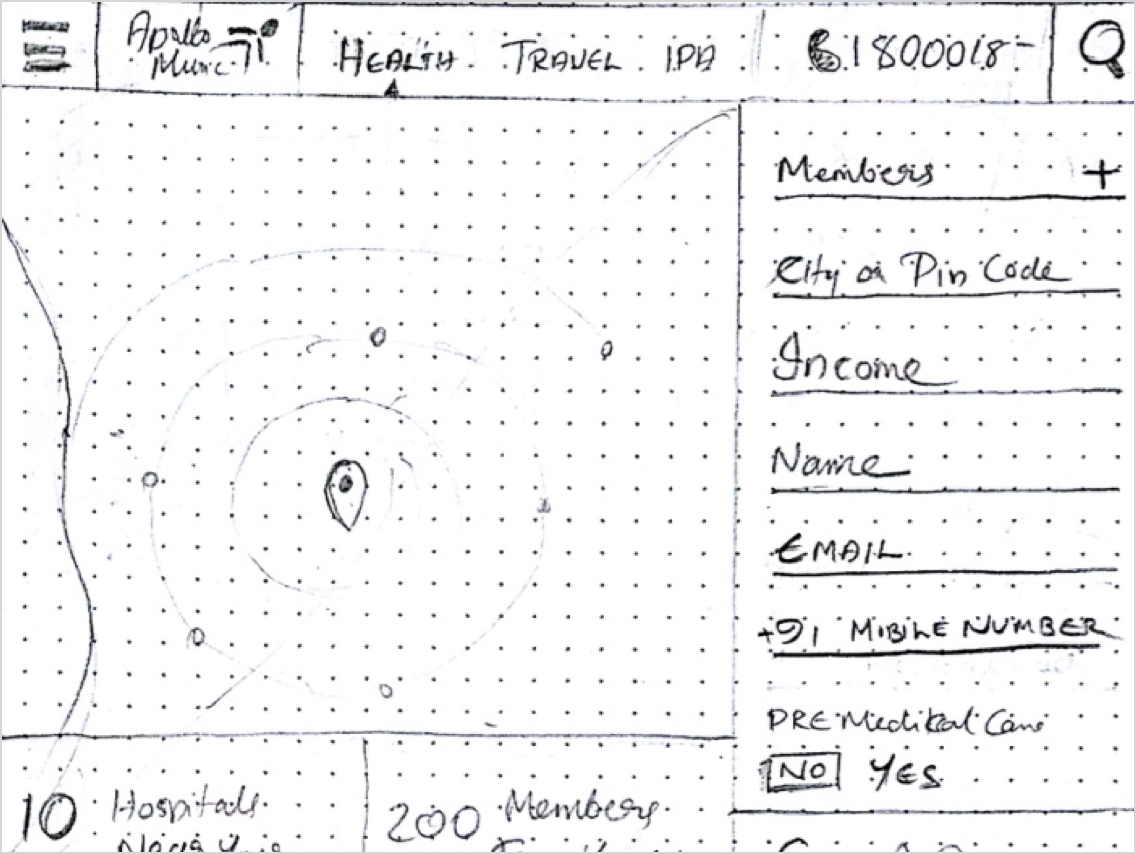 Apollo
Munic
HEALTH TRAVEL IPA
1800018-
Members +
City or Pin Code
Income
Name
EMAIL
+91 MIBILE NUMBER
PRE Medikal
NO YES
10 Hospitals
200 Members